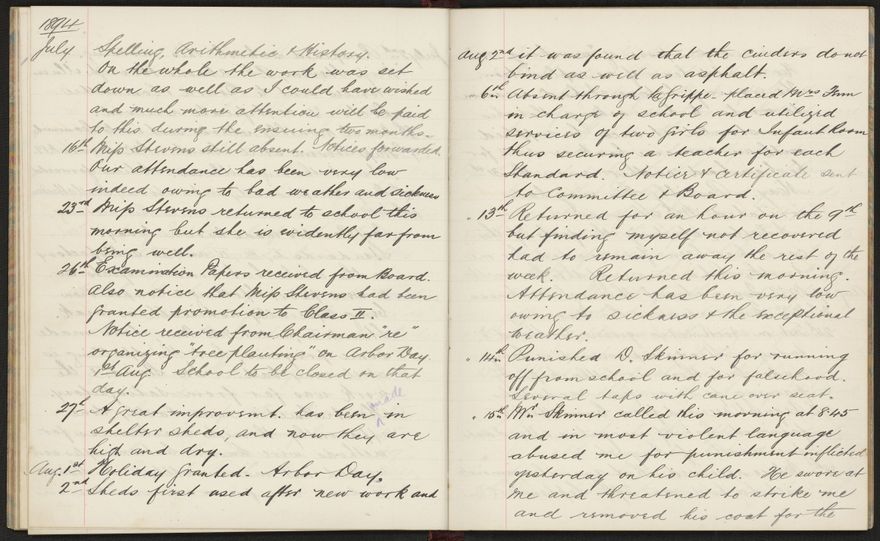 1894
July Spelling, Arithmetic & History.
On the whole the work was set
down as well as I could have wished
and much more attention will be paid
to this during the ensuing two months.
16th Miss Stevens still absent. Notices forwarded.
Our attendance has been very low
indeed owing to bad weather and sickness
23rd Miss Stevens returned to school this
morning but she is evidently far from
being well.
26th Examination Papers received from Board.
Also notice that Miss Stevens had been
granted promotion to Class II.
Notice received from Chairman "re"
organizing "tree planting" on Arbor Day
1st Aug. School to be closed on that
day.
27th A great improvemt. has been made in
shelter sheds, and now they are
high and dry.
Aug. 1st Holiday granted. Arbor Day.
2nd Sheds first used after new work and
Aug 2nd it was found that the cinders do not
bind as well as asphalt.
6th Absent through la grippe. placed Mrs
in charge of school and utilized
services of two girls for Infant Room
thus securing a teacher for each
Standard. Notice & certificate sent
to Committee & Board.
13th Returned for an hour on the 9th
but finding myself not recovered
had to remain away the rest of the
week. Returned this morning.
Attendance has been very low
owing to sickness & the exceptional
weather.
14th Punished D. Skinner for running
off from school and for falsehood.
Several taps with cane over seat.
15th Mr. Skinner called this morning at 8.45
and in most violent language
abused me for punishment inflicted
yesterday on his child. He swore at
me and threatened to strike me
and removed his coat for the